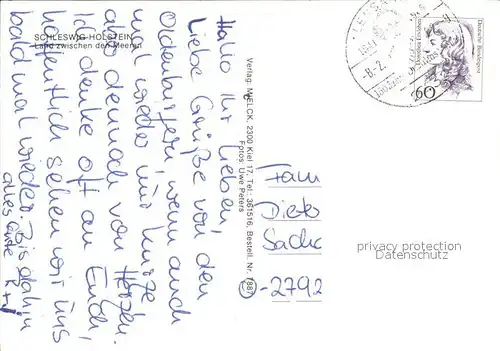 SCHLESWIG-HOLSTEIN
Land zwischen den Meeren
Hallo Ihr Lieben,
Liebe Grüße von den
Oldenburgern wenn auch
mal wieder nur kurze
aber dennoch von Herzen.
Ich denke oft an Euch,
hoffentlich sehen wir uns
bald mal wieder. Bis dahin
alles Gute
Verlag: MIELCK, 2300 Kiel 17, Tel.: 361516, Bestell. Nr. 7887
Fotos: Uwe Peters
Deutsche Bundespost
60
-8.2.
Fam
Dieter
-2792
privacy protection
Datenschutz